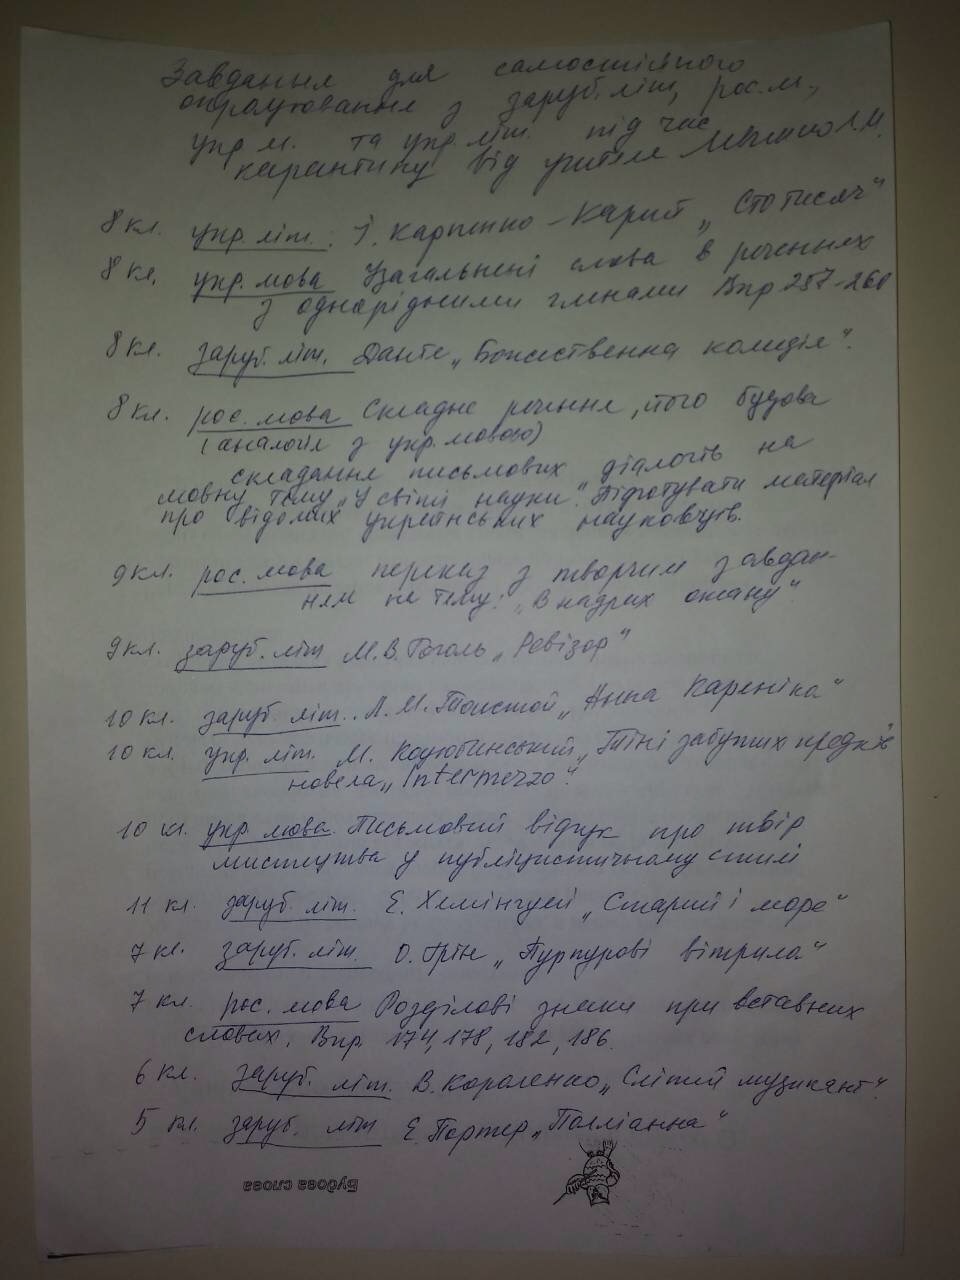 Завдання для самостійного
опрацювання з заруб.літ, рос.м.,
укр м. та укр. літ. під час
карантину від учителя
8 кл. укр. літ. І. Карпенко-Карий „Сто тисяч"
8 кл. укр. мова Узагальнені слова в реченнях
з однорідними членами Впр 257-260
8 кл. заруб. літ. Данте „Божественна комедія".
8 кл. рос. мова Складне речення, його будова
(аналогія з укр. мовою)
складання письмових діалогів на
мовну тему „У світі науки". Підготувати матеріал
про відомих українських науковців.
9 кл. рос. мова переказ з творчим завдан-
ням на тему: „В надрах океану".
9 кл. заруб. літ М.В. Гоголь „Ревізор"
10 кл. заруб. літ. Л.М. Толстой „Анна Кареніна"
10 кл. укр. літ. М. Коцюбинський „Тіні забутих предків"
новела „Intermezzo".
10 кл. укр. мова. Письмовий відгук про твір
мистецтва у публіцистичному стилі
11 кл. заруб. літ. Е. Хемінгуей „Старий і море"
7 кл. заруб. літ. О. Грін „Пурпурові вітрила"
7 кл. рос. мова Розділові знаки при вставних
словах. Впр. 174, 178, 182, 186.
6 кл. заруб. літ. В. Короленко „Сліпий музикант".
5 кл. заруб. літ Е. Портер „Полліанна"
Будова слова